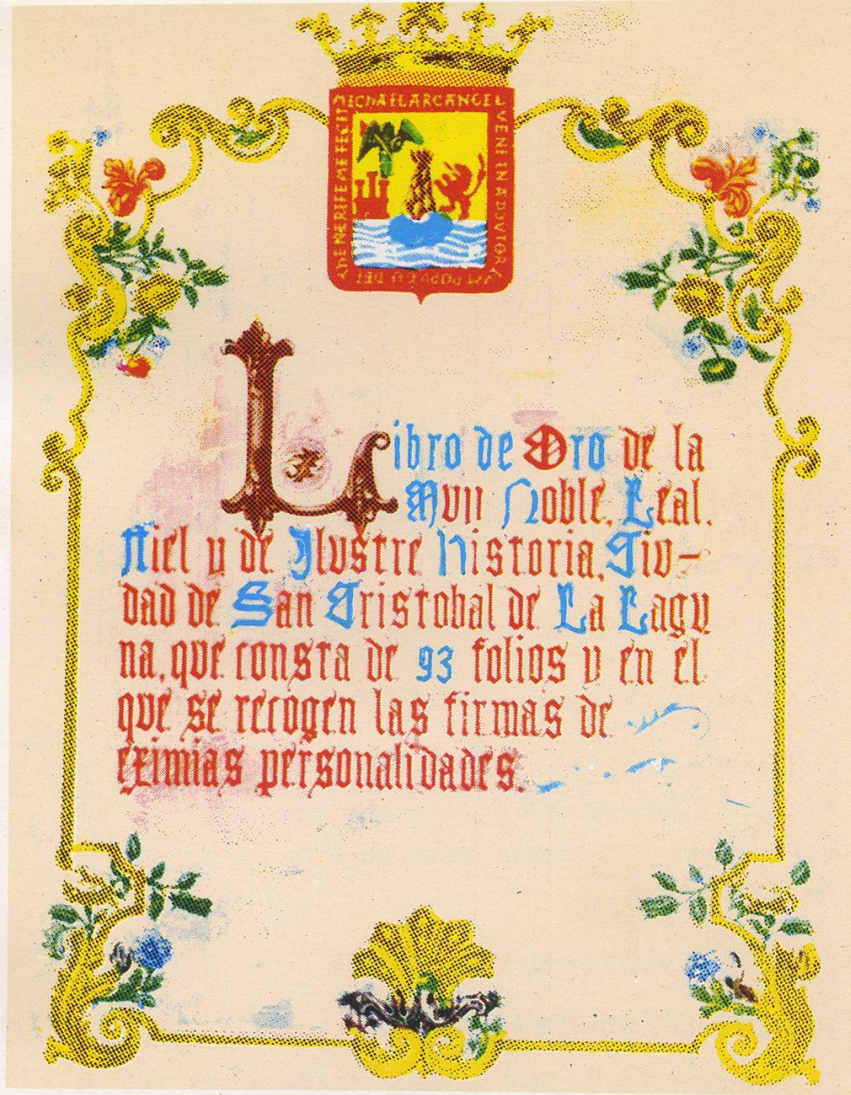 MICHAEL ARCANGEL
VENI IN ADJUTOR
Libro de Oro de la
Muy Noble, Leal,
Fiel y de Ilustre Historia, Ciu-
dad de San Cristobal de La Lagu
na, que consta de 93 folios y en el
que se recogen las firmas de
eximias personalidades.